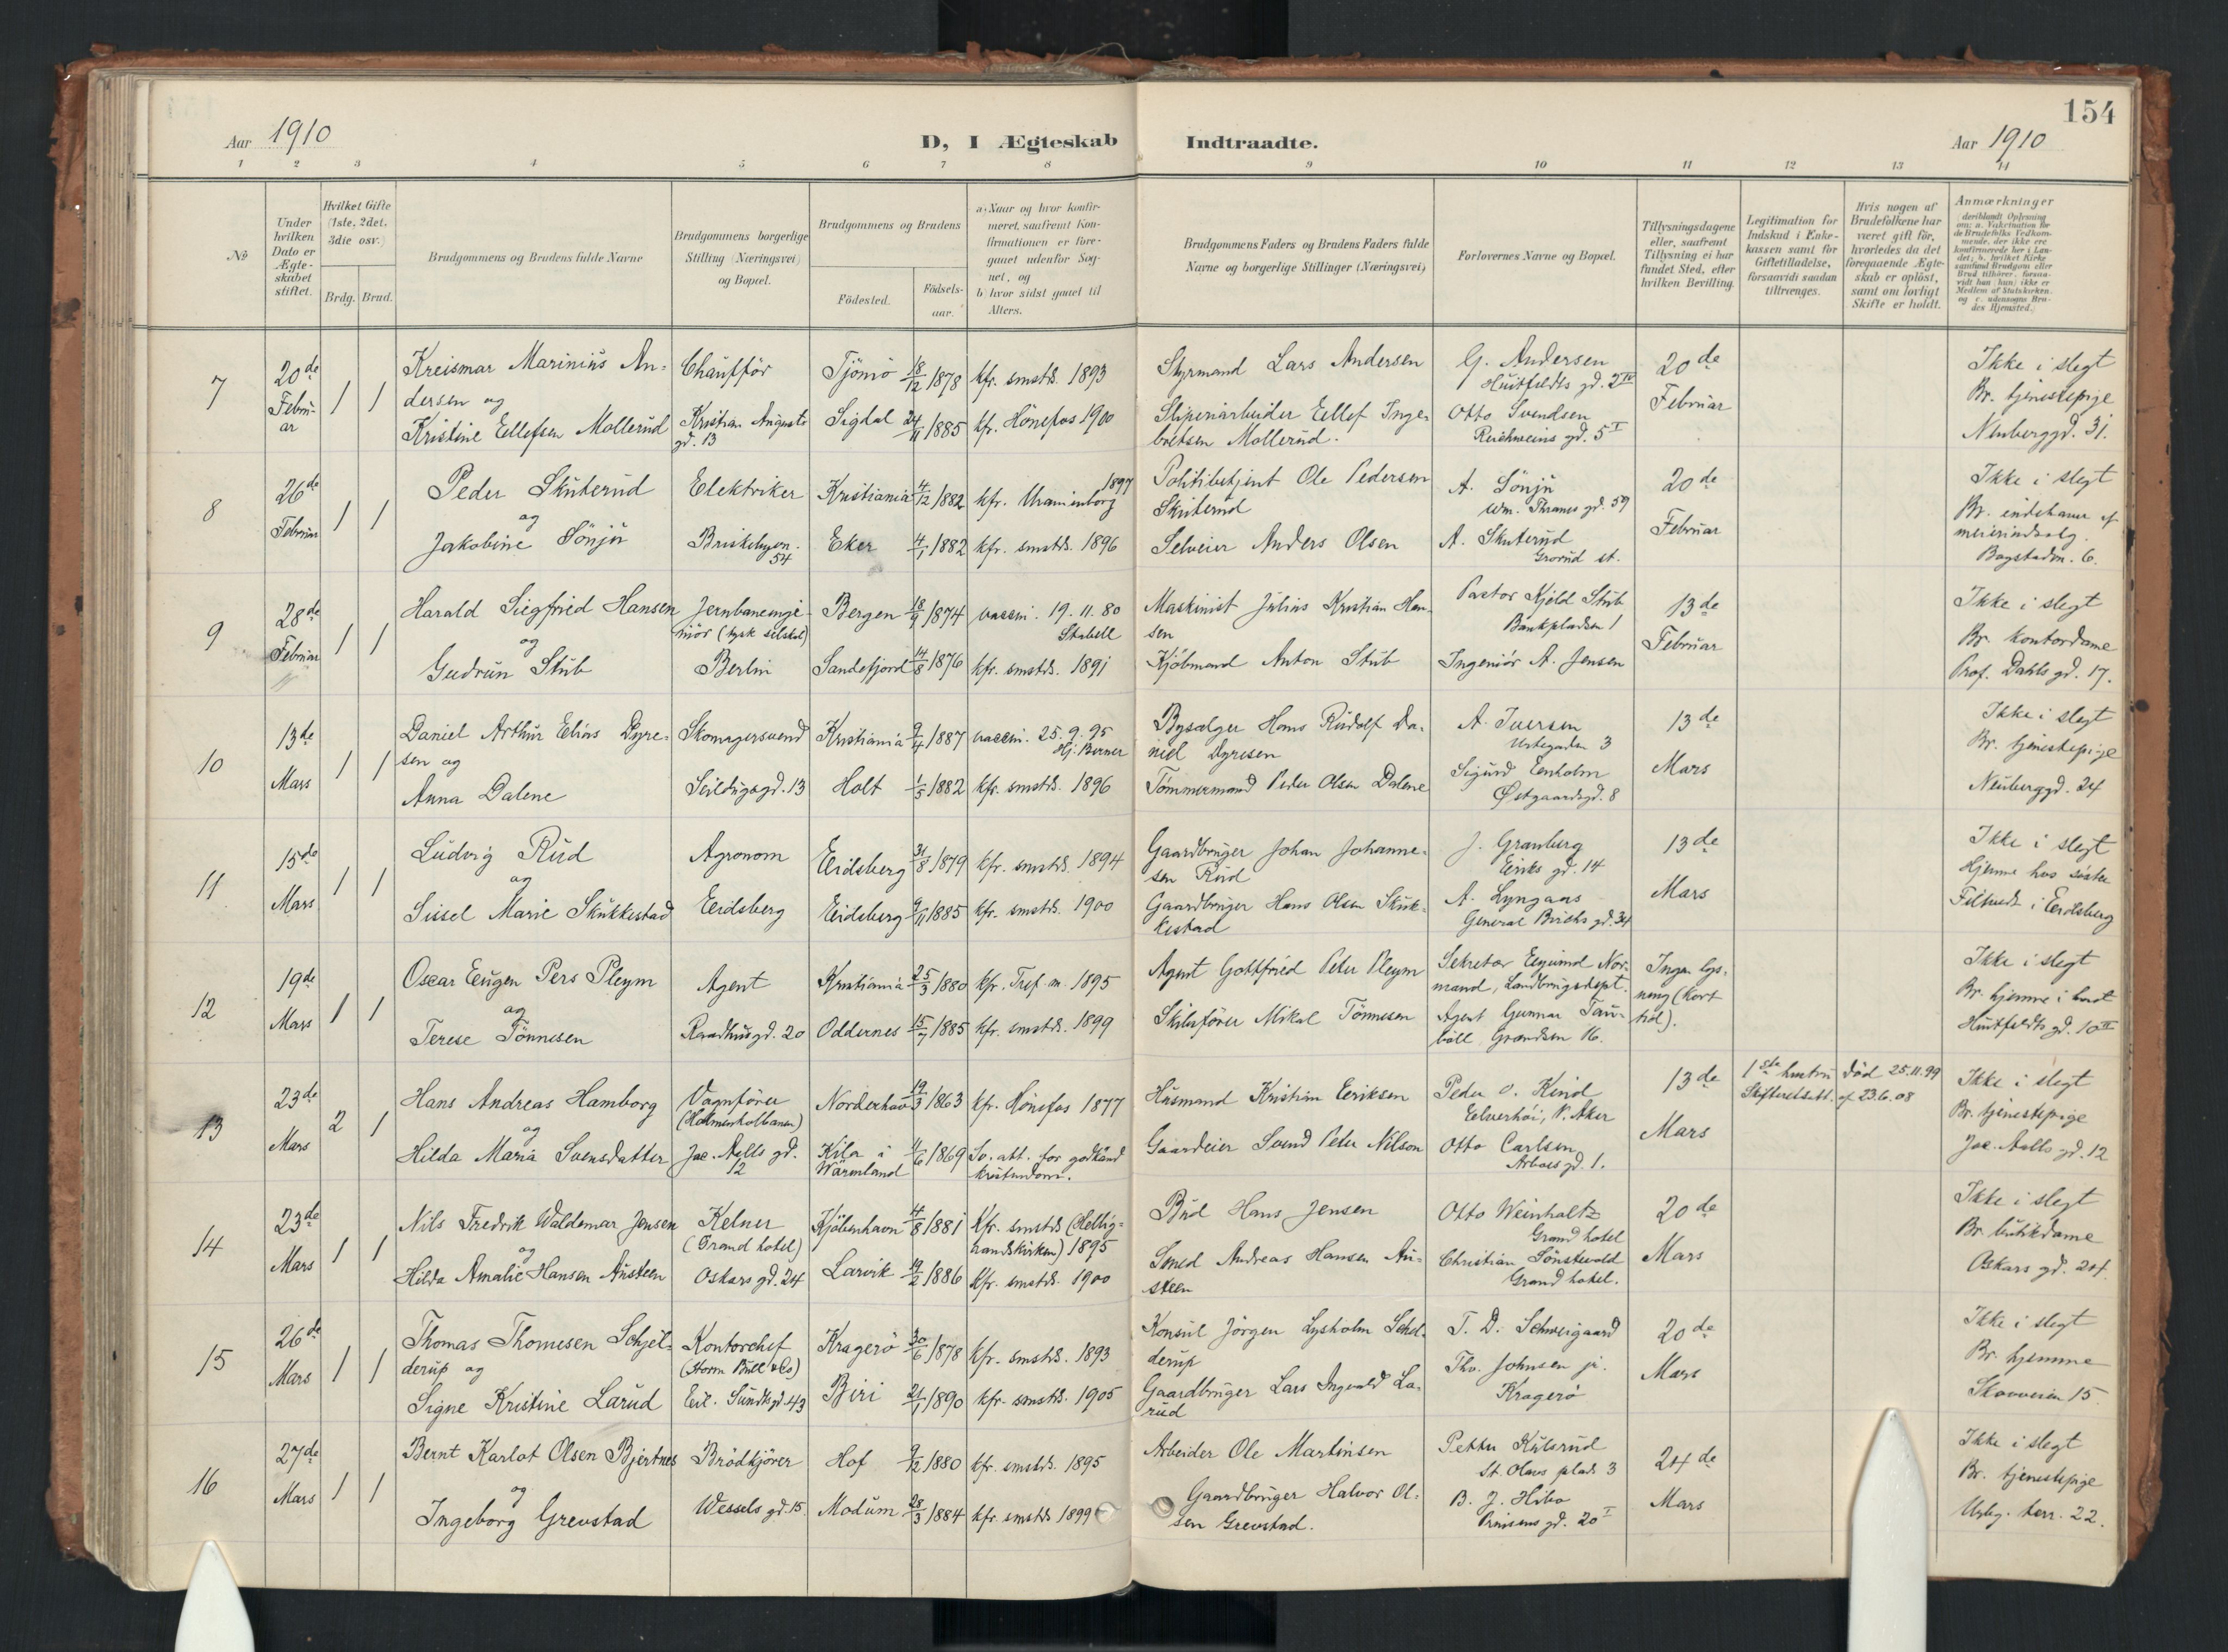 154
Aar 1910
D, I Ægteskab Indtraadte.
Aar 1910
1 2 3 4 5 6 7 8 9 10 11 12 13 14
№
Under hvilken Dato er Ægteskabet stiftet.
Hvilket Gifte (1ste, 2det, 3die osv.)
Brdg. Brud.
Brudgommens og Brudens fulde Navne
Brudgommens borgerlige Stilling (Næringsvei) og Bopæl.
Brudgommens og Brudens
Fødested.
Fødsels-aar.
a) Naar og hvor konfir-
meret, saafremt Kon-
firmationen er fore-
gaaet udenfor Sog-
net, og
b) hvor sidst gaaet til
Alters.
Brudgommens Faders og Brudens Faders fulde
Navne og borgerlige Stillinger (Næringsvei)
Forlovernes Navne og Bopæl.
Tillysningsdagene
eller, saafremt
Tillysning ei har
fundet Sted, efter
hvilken Bevilling.
Legitimation for
Indskud i Enke-
kassen samt for
Giftetilladelse,
forsaavidt saadan
tiltrænges.
Hvis nogen af
Brudefolkene har
været gift før,
hvorledes da det
foregaaende Ægte-
skab er opløst,
samt om lovligt
Skifte er holdt.
Anmærkninger
(deriblandt Oplysning
om: a. Vakcination for
de Brudefolks Vedkom-
mende, der ikke ere
konfirmerede her i Lan-
det; b. hvilket Kirke-
samfund Brudgom eller
Brud tilhører, forsaa-
vidt han (hun) ikke er
Medlem af Statskirken,
og c. udensogns Bru-
des Hjemsted.)
7 20de Februar 1 1
Kreismar Marinius An-
dersen og
Kristine Ellefsen Mollerud
Chaufför
Kristian Augusts
gd. 13
Tjömö 18/12 1878 kfr. smstds. 1893
Sigdal 24/11 1885 kfr. Hönefos 1900
Styrmand Lars Andersen
Sliperiarbeider Ellef Inge-
bretsen Mollerud.
G. Andersen
Huitfeldts gd. 2 IV
Otto Svendsen
Reichweins gd. 5 I
20de
Februar
Ikke i slegt
Br. tjenestepige
Neuberggd. 31.
8 26de Februar 1 1
Peder Skuterud
og
Jakobine Sönju
Elektriker
Briskebyven.
54
Kristiania 4/12 1882 kfr. Uranienborg 1897
Eker 4/1 1882 kfr. smstds. 1896
Politibetjent Ole Pedersen
Skuterud
Selveier Anders Olsen
A. Sönju
Wm. Thranes gd. 59
A. Skuterud
Grorud st.
20de
Februar
Ikke i slegt
Br. indehaver af
meieriudsalg.
Bogstadvn. 6.
9 28de Februar 1 1
Harald Siegfried Hansen
og
Gudrun Stub
Jernbaneinge-
niör (tysk selskab)
Berlin
Bergen 18/9 1874 vaccin. 19.11.80
Stabell
Sandefjord 14/8 1876 kfr. smstds. 1891
Maskinist Julius Kristian Han-
sen
Kjöbmand Anton Stub
Pastor Kjeld Stub
Bankpladsen 1
Ingeniör A. Jensen
13de
Februar
Ikke i slegt
Br. kontordame
Prof. Dahls gd. 17.
10 13de Mars 1 1
Daniel Arthur Elias Dyre-
sen og
Anna Dalene
Skomagersvend
Seildugsgd. 13
Kristiania 9/4 1887 vaccin. 25.9.95
Hj. Berner
Holt 1/5 1882 kfr. smstds. 1896
Bysælger Hans Rudolf Da-
niel Dyresen
Tömmermand Peder Olsen Dalene
A. Iversen
Urtegaden 3
Sigurd Eenholm
Østgaardsgd. 8
13de
Mars
Ikke i slegt
Br. tjenestepige
Neuberggd. 24
11 15de Mars 1 1
Ludvig Rud
og
Sissel Marie Skukkestad
Agronom
Eidsberg
Eidsberg 31/8 1879 kfr. smstds. 1894
Eidsberg 9/11 1885 kfr. smstds. 1900
Gaardbruger Johan Johanne-
sen Rud
Gaardbruger Hans Olsen Skuk-
kestad
J. Granberg
Eriks gd. 14
A. Lyngaas
General Birchs gd. 34
13de
Mars
Ikke i slegt
Hjemme hos søster
i Eidsberg
12 19de Mars 1 1
Oscar Eugen Pers Pleym
og
Terese Tönnesen
Agent
Raadhusgd. 20
Kristiania 25/3 1880 kfr. Tref. m. 1895
Oddernes 15/7 1885 kfr. smstds. 1899
Agent Gottfried Peter Pleym
Skibsförer Mikal Tönnesen
Sekretær Eyvind Nor-
mand, Landbrugsdept.
Agent Gunnar Tau-
böll Grændsen 16.
Ingen lys-
ning (kort
tid).
Ikke i slegt
Br. hjemme i hvert
Huitfeldts gd. 10 II
13 23de Mars 2 1
Hans Andreas Hamborg
og
Hilda Maria Svensdatter
Vognförer
(Holmenkolbanen)
Jac. Aalls gd.
12
Norderhov 19/3 1863 kfr. Hönefos 1877
Kila i
Wärmland
4/6 1869 Sv. att. for godkänd
kristendom.
Husmand Kristian Eriksen
Gaardeier Svend Peter Nilson
Peder O. Kind
Elverhöi, V. Aker
Otto Carlsen
Arboes gd. 1.
13de
Mars
1ste hustru död 25.11.99
Skifteretsatt. af 23.6.08
Ikke i slegt
Br. tjenestepige
Jac. Aalls gd. 12
14 23de Mars 1 1
Nils Fredrik Waldemar Jensen
og
Hilda Amalie Hansen Austeen
Kelner
(Grand hotel)
Oskars gd. 24
Kjöbenhavn 14/8 1881 Kfr. smstds (Hellig-
aandskirken) 1895
Larvik 19/2 1886 kfr. smstds. 1900
Bud Hans Jensen
Smed Andreas Hansen Au-
steen
Otto Weinholtz
Grand hotel
Christian Sönstevold
Grand hotel.
20de
Mars
Ikke i slegt
Br. butikdame
Oskars gd. 24.
15 26de Mars 1 1
Thomas Thomesen Schjel-
derup og
Signe Kristine Larud
Kontorchef
(Horn Bull & Co)
Eil. Sundts gd 43
Kragerö 30/6 1878 kfr. smstds. 1893
Biri 21/1 1890 kfr. smstds. 1905
Konsul Jörgen Lysholm Schel-
derup
Gaardbruger Lars Ingvald La-
rud
T. D. Schweigaard
Thv. Johnsen jr.
Kragerö
20de
Mars
Ikke i slegt
Br. hjemme
Skovveien 15
16 27de Mars 1 1
Bernt Karlot Olsen Bjertnes
og
Ingeborg Grevstad
Brödkjörer
Wessels gd. 15.
Hof 9/12 1880 kfr. smstds. 1895
Modum 28/3 1884 kfr. smstds 1899
Arbeider Ole Martinsen
Gaardbruger Halvor Ol-
sen Grevstad.
Petter Kulsrud
St. Olavs plads 3
B. J. Hibo
Prinsens gd. 20 I
24de
Mars
Ikke i slegt
Br. tjenestepige
terr. 22.